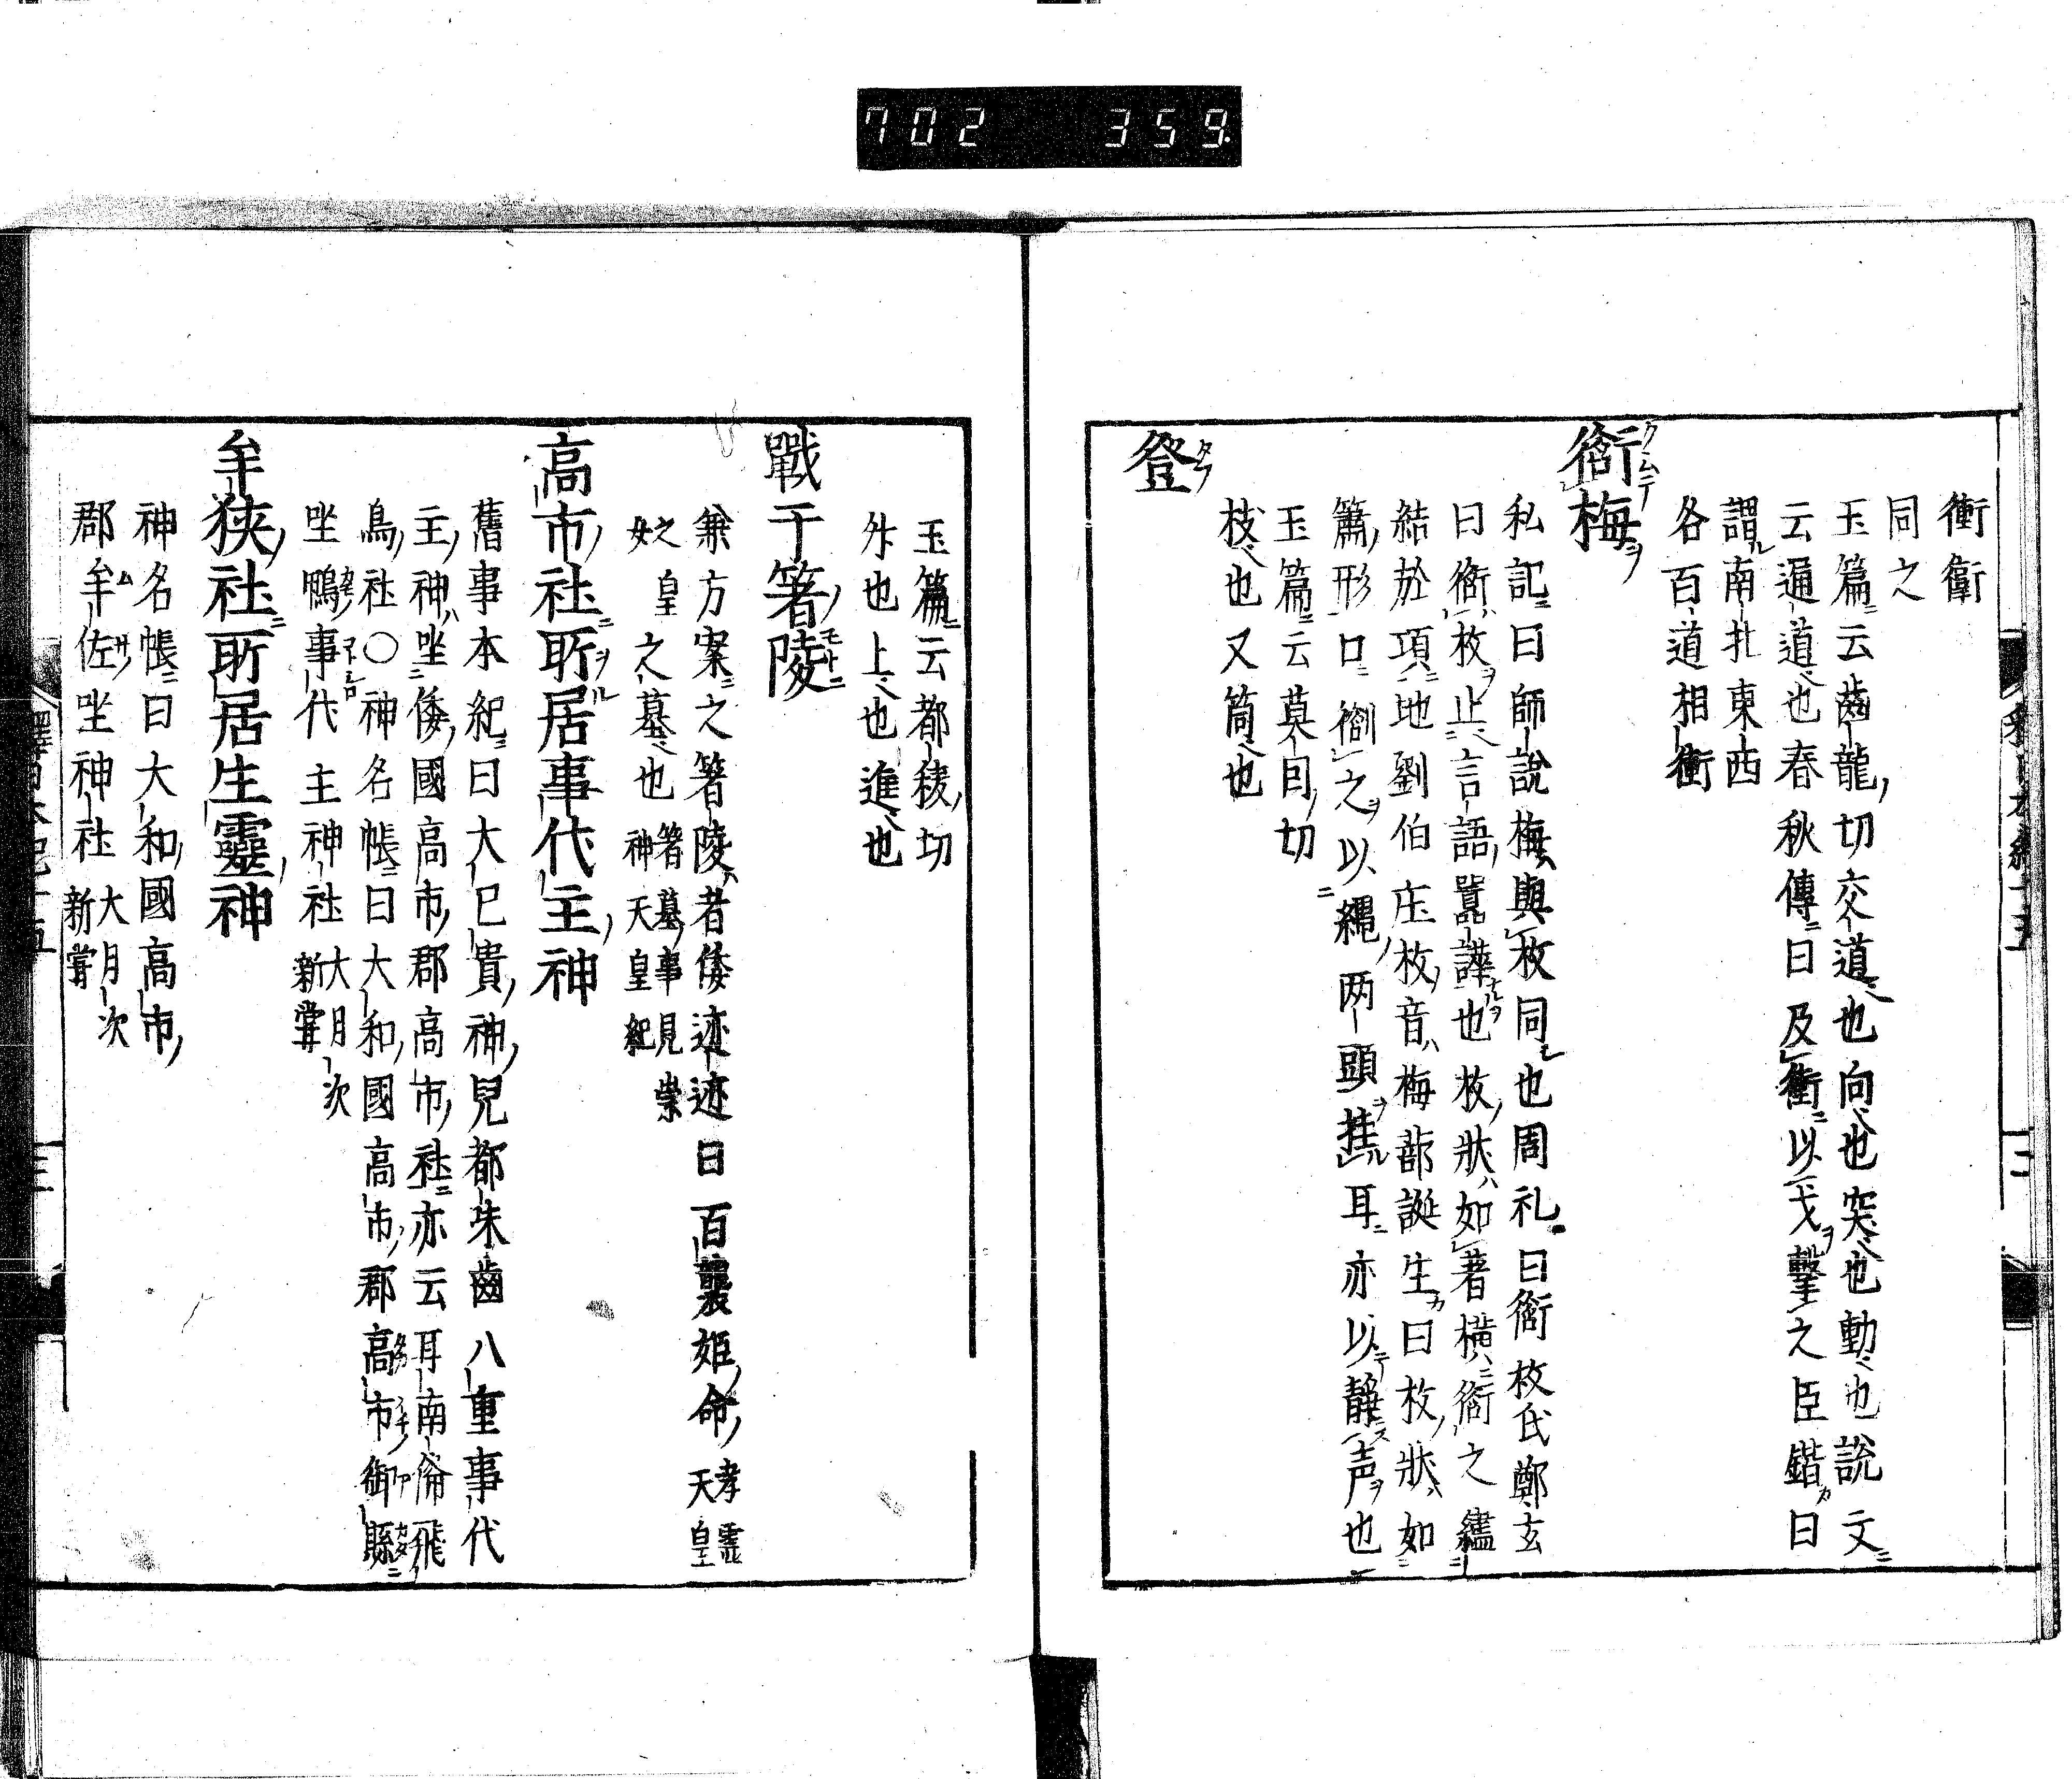 702 359
衝衢
同之
玉篇云齒龍切交道也向也突也動也說文
云通道也春秋傳曰及衝以戈擊之臣鍇曰
謂南北東西
各百道相衝
銜梅
私記曰師說梅與枚同也周礼曰銜枚氏鄭玄
曰銜枚止言語囂譁也枚狀如著橫銜之繣
結於項地劉伯庄枚音梅蔀誕生曰枚狀如
簫形口銜之以繩两頭挂耳亦以靜声也
玉篇云莫囘切
枝也又筒也
登
玉篇云都稜切
外也上也進也
戰于箸陵
兼方案之箸陵者倭迹迹日百襲姬命孝霊天皇
之皇女之墓也箸墓事見崇神天皇紀
高市社所居事代主神
舊事本紀曰大巳貴神兒都朱齒八重事代
主神坐倭國高市郡高市社亦云耳南俻飛
鳥社〇神名帳曰大和國高市郡高市御縣
坐鴨事代主神社大月次新嘗
牟狹社所居生靈神
神名帳曰大和國高市
郡牟佐坐神社大月次新嘗